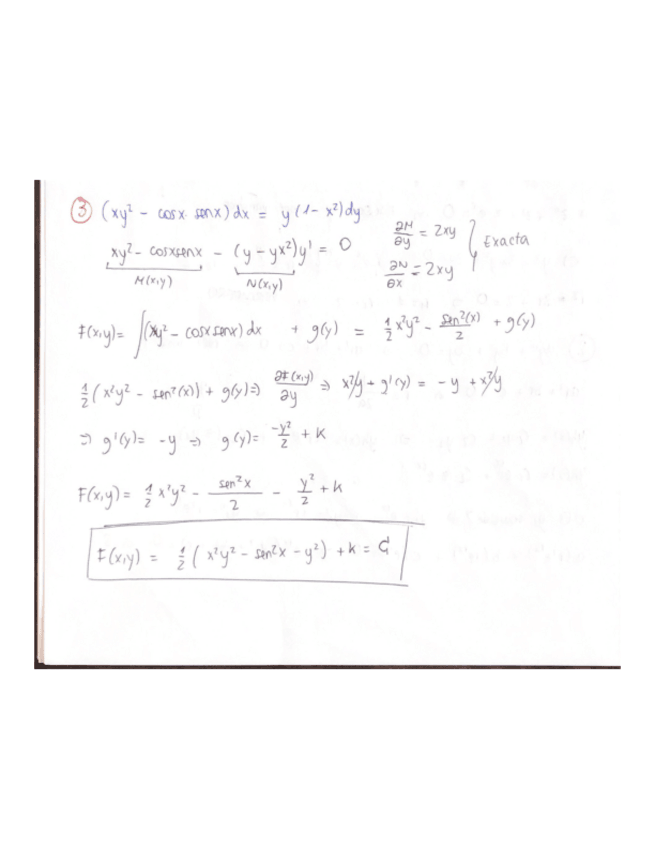 ③ (xy² - cosx senx) dx = y (1 - x²) dy
xy² - cosxsenx - (y - yx²) y' = 0
M(x,y) N(x,y)
∂M/∂y = 2xy
∂N/∂x = 2xy
Exacta
F(x,y) = ∫(xy² - cosx senx) dx + g(y) = 1/2 x²y² - sen²(x)/2 + g(y)
1/2 (x²y² - sen²(x)) + g(y) ⇒ ∂F(x,y)/∂y ⇒ x²y + g'(y) = -y + x²y
⇒ g'(y) = -y ⇒ g(y) = -y²/2 + K
F(x,y) = 1/2 x²y² - sen²x/2 - y²/2 + K
F(x,y) = 1/2 ( x²y² - sen²x - y²) + K = C